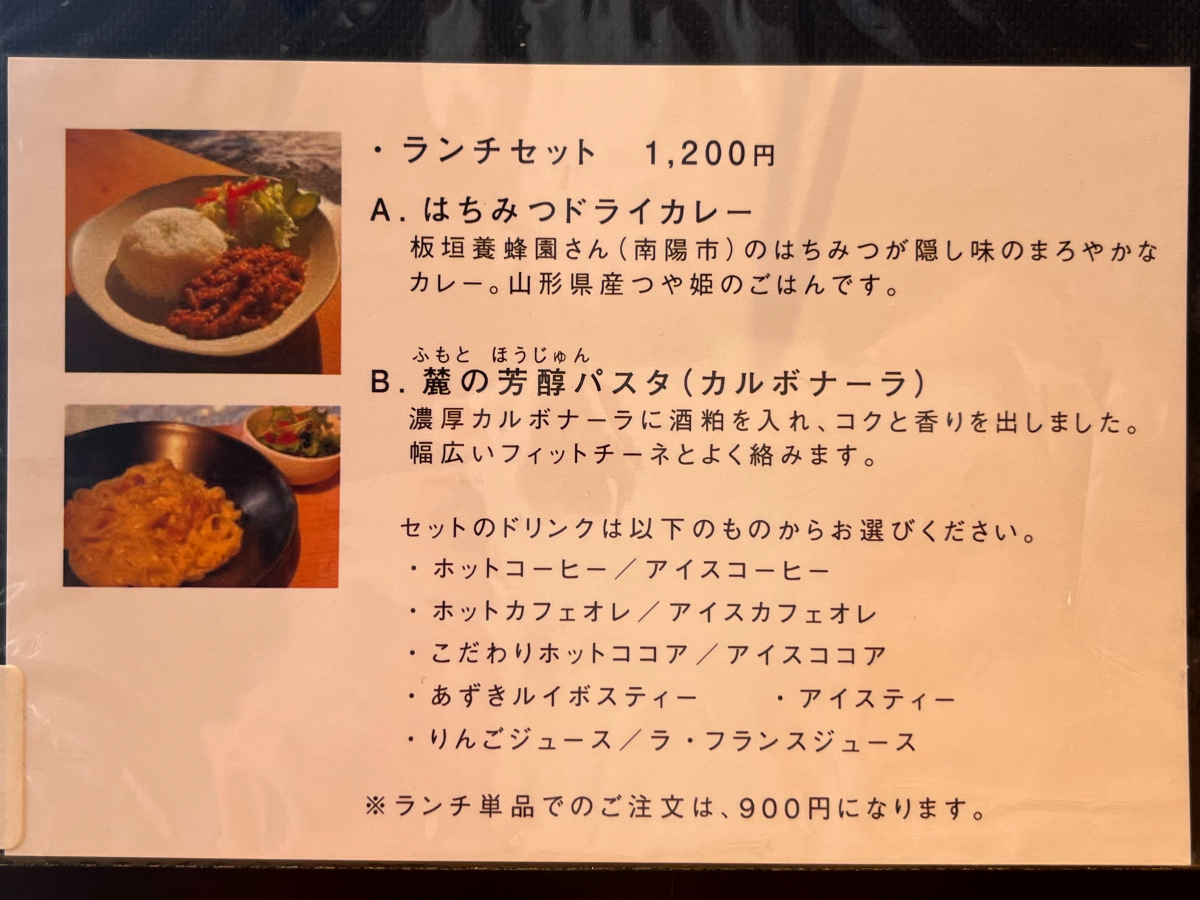 ・ランチセット 1,200円
A. はちみつドライカレー
板垣養蜂園さん(南陽市)のはちみつが隠し味のまろやかな
カレー。山形県産つや姫のごはんです。
ふもと ほうじゅん
B. 麓の芳醇パスタ(カルボナーラ)
濃厚カルボナーラに酒粕を入れ、コクと香りを出しました。
幅広いフィットチーネとよく絡みます。
セットのドリンクは以下のものからお選びください。
・ホットコーヒー/アイスコーヒー
・ホットカフェオレ/アイスカフェオレ
・こだわりホットココア/アイスココア
・あずきルイボスティー ・アイスティー
・りんごジュース/ラ・フランスジュース
※ランチ単品でのご注文は、900円になります。